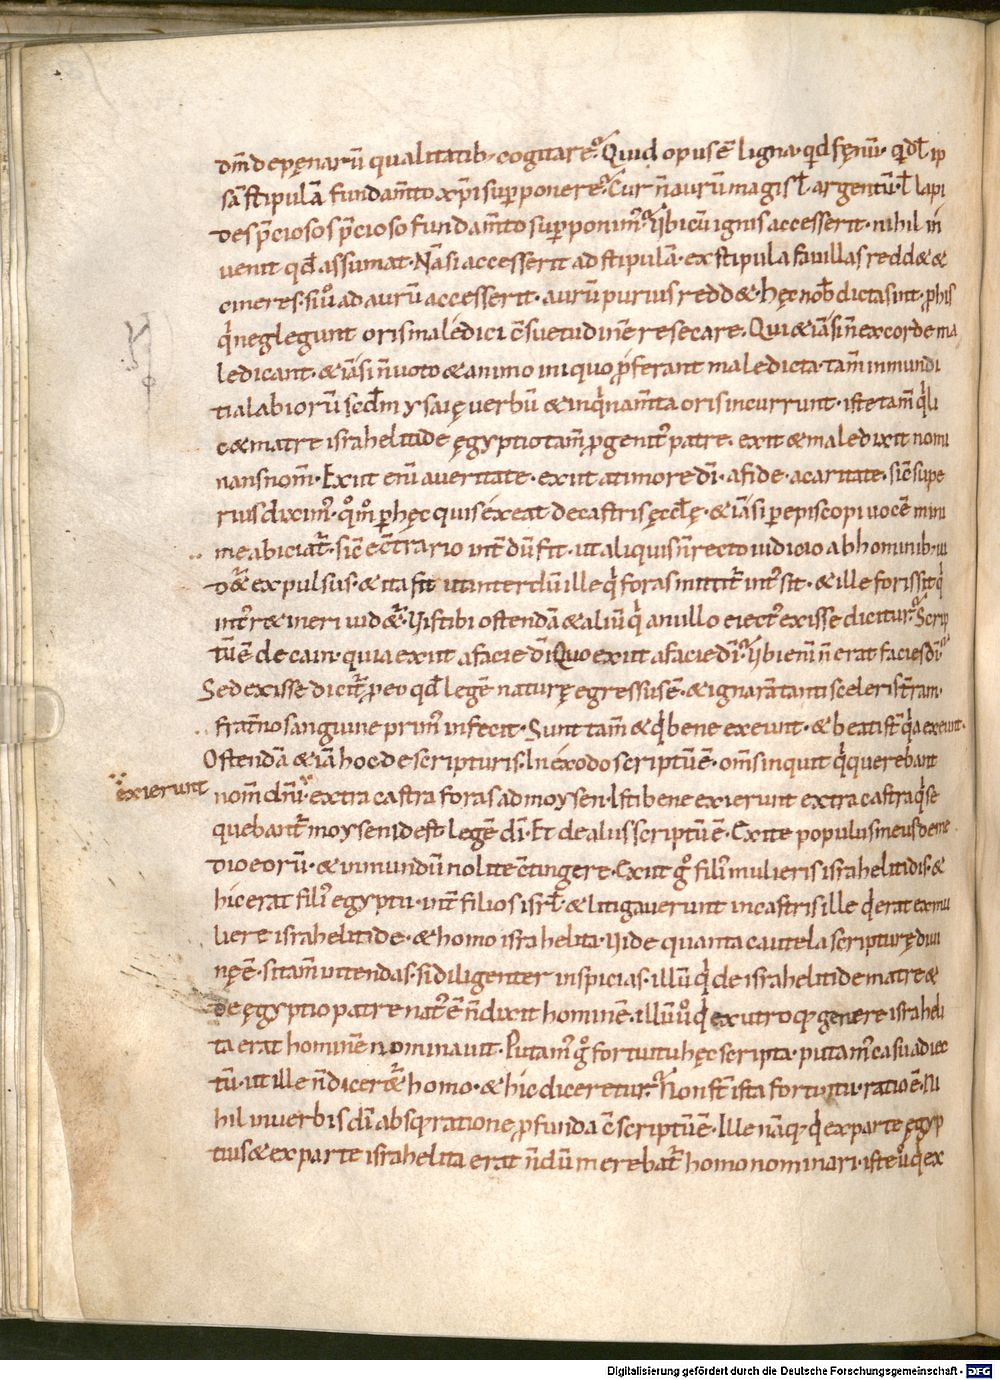 om̅ depęnarū qualitatib; cogitare? Quid opus ē ligna· qd fęnū· qd ł ip
sā stipulā fundam̅to xp̅i supponere? Cur n̅ aurū magis ł argentū· ł lapi
des p̅ciosos p̅cioso fundam̅to supponim᷒? Ubi cū ignis accesserit· nihil in
venit qd̅ assumat· Nā si accesserit ad stipulā· ex stipula favillas redd& &
cineres· si u̅o ad aurū accesserit· aurū purius redd&· hęc nob̅ dicta sint· p̱ his
q̍ neglegunt oris maledici c̅suetudinē resecare· Qui & iā si n̅ ex corde ma
ledicant· & iā si n̅ voto & animo iniquo p̱ferant maledicta· tam̅ inmundi
tia labiorū scd̅m ysaię verbū & inq̍nam̅ta oris incurrunt· iste tam̅ q̍ li
c& matre israhelitide ęgyptio tam̅ p̱genit᷒ patre· exit & maledixit nomi
nans nom̅· Exiit eni̅ a veritate· exiit a timore dī· a fide· a caritate· sic̅ supe
rius dixim᷒· qm̅o p̱ hęc quis exeat de castris ęccłę· & iā si p̱ episcopi vocē mini
me abiciat᷑· sic̅ e c̅trario int̅dū fit· ut aliquis n̅ recto iudicio ab hominib; vi
d&᷑ expulsus· & ita fit ut interdū ille q̍ foras mittit᷑ int᷒ sit· & ille foris sit q̍
int᷒ r&ineri vid&᷑· Vis tibi ostendā & aliū q̍ a nullo eiect᷒ exisse dicitur? Scrip
tū ē de cain· quia exiit a facie dī Quo exiit a facie dī? Ubi eni̅ n̅ erat facies dī?
Sed exisse dicit᷑ p̱ eo qd̅ legē naturę egressus ē· & ignarā tanti sceleris t̅ram·
frat̅no sanguine prim᷒ infecit· Sunt tam̅ & q̍ bene exeunt· & beati s̅t q̍ ita exeunt·
Ostendā & iā hoc de scripturis· In éxodo scriptū ē· om̅s inquit q̍ querebant
exierunt
nom̅ dn̅i extra castra foras ad moysen· Isti bene exierunt extra castra q̍ se
quebant᷑ moysen id est legē dī· Et de aliis scriptū ē· Exite populus meus de me
dio eorū· & inmundū nolite c̅tingere· Exiit g̊ fili᷒ mulieris israhelitidis· &
hic erat fili᷒ egyptii· int̅ filios isrł· & litigaverunt in castris ille q̍ erat ex mu
liere israhelitide· & homo israhelita· Vide quanta cautela scripturę divi
nę ē· si tam̅ intendas· si diligenter inspicias· illū q̍ de israhelitide matre &
de ęgyptio patre nat᷒ ē n̅ dixit hominē· illū u̅o q̍ ex utroq; genere israheli
ta erat hominē nominavit· Putam᷒ g̊ fortuitu hęc scripta· putam᷒ casu adiec
tū· ut ille n̅ dicer&᷑ homo· & hic diceretur? Non s̅t ista fortuitu· ratio ē· Ni
hil in verbis dī absq; ratione p̱funda c̅scriptū ē· Ille nāq; q̍ ex parte ęgyp
tius & ex parte israhelita erat n̅dū merebat᷑ homo nominari· iste u̅o q̍ ex
Digitalisierung gefördert durch die Deutsche Forschungsgemeinschaft - DFG